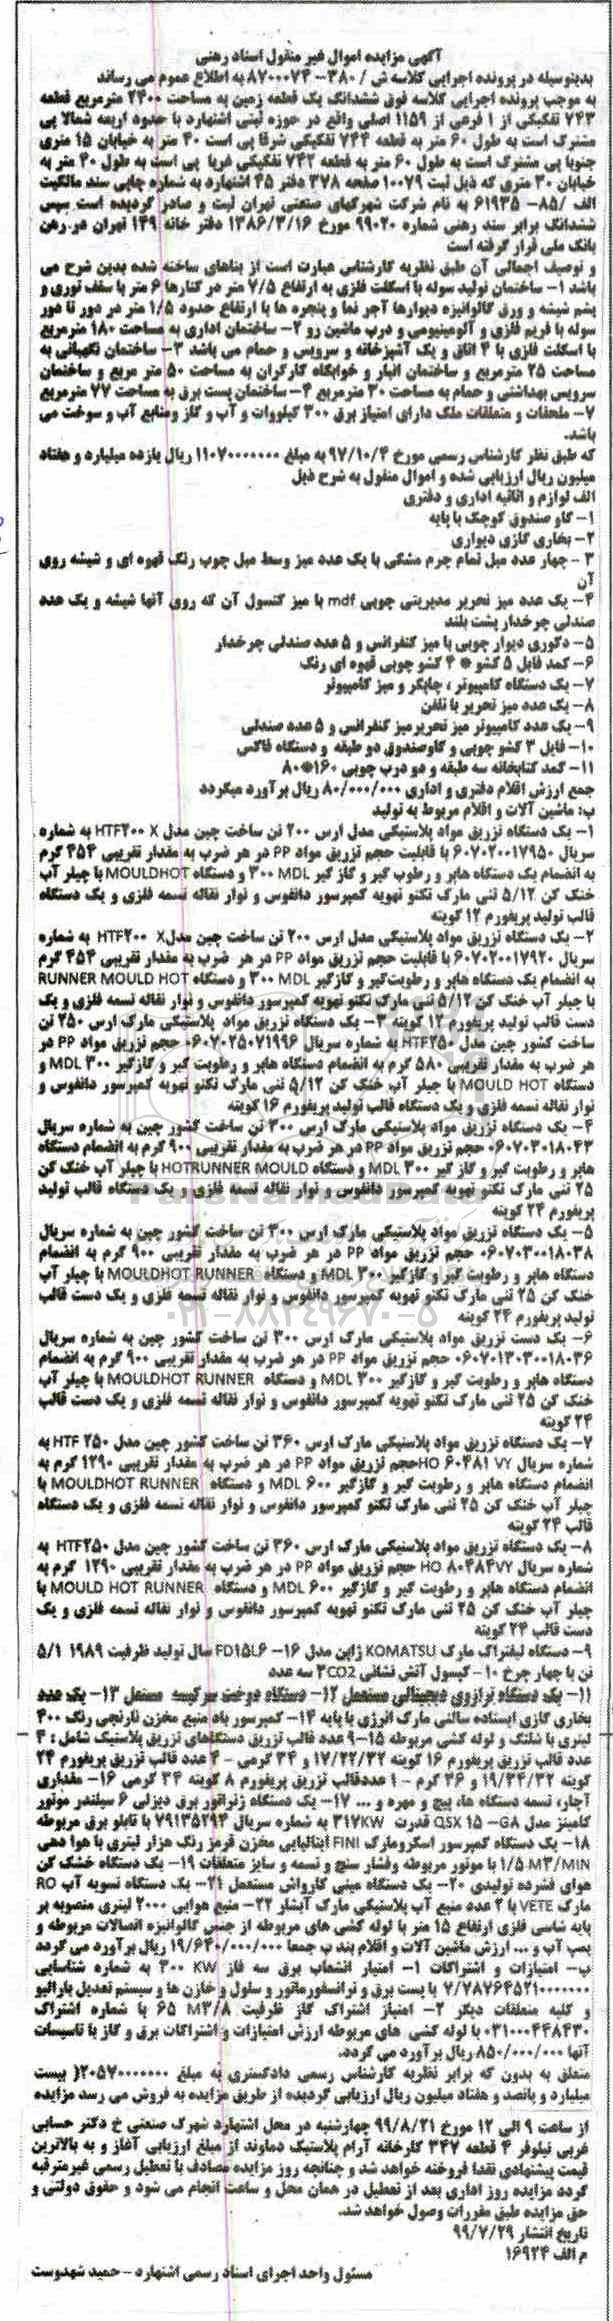 آگهی مزایده اموال غیر منقول اسناد رهنی
بدینوسیله در پرونده اجرایی کلاسه ش / ۳۸۰- ۸۷۰۰۰۷۴ به اطلاع عموم می رساند
به موجب پرونده اجرایی کلاسه فوق ششدانگ یک قطعه زمین به مساحت ۲۴۰۰ مترمربع قطعه
۷۴۳ تفکیکی از ۱ فرعی از ۱۱۵۹ اصلی واقع در حوزه ثبتی اشتهارد با حدود اربعه شمالا پی
مشترک است به طول ۶۰ متر به قطعه ۷۴۴ تفکیکی شرقا پی است ۴۰ متر به خیابان ۱۵ متری
جنوبا پی مشترک است به طول ۶۰ متر به قطعه ۷۴۲ تفکیکی غربا پی است به طول ۴۰ متر به
خیابان ۳۰ متری که ذیل ثبت ۱۰۰۷۹ صفحه ۳۷۸ دفتر ۴۵ اشتهارد به شماره چاپی سند مالکیت
الف /۸۵- ۶۱۹۳۵ به نام شرکت شهرکهای صنعتی تهران ثبت و صادر گردیده است سپس
ششدانگ برابر سند رهنی شماره ۹۹۰۲۰ مورخ ۱۳۸۶/۳/۱۶ دفتر خانه ۱۴۹ تهران در رهن
بانک ملی قرار گرفته است
و توصیف اجمالی آن طبق نظریه کارشناس عبارت است از بناهای ساخته شده بدین شرح می
باشد ۱- ساختمان تولید سوله با اسکلت فلزی به ارتفاع ۷/۵ متر در کنارها ۶ متر با سقف توری و
پشم شیشه و ورق گالوانیزه دیوارها آجر نما و پنجره ها با ارتفاع حدود ۱/۵ متر در دور تا دور
سوله با فریم فلزی و آلومینیومی و درب ماشین رو ۲- ساختمان اداری به مساحت ۱۸۰ مترمربع
با اسکلت فلزی با ۴ اتاق و یک آشپزخانه و سرویس و حمام می باشد ۳- ساختمان نگهبانی به
مساحت ۲۵ مترمربع و ساختمان انبار و خوابگاه کارگران به مساحت ۵۰ متر مربع و ساختمان
سرویس بهداشتی و حمام به مساحت ۳۰ مترمربع ۴- ساختمان پست برق به مساحت ۷۷ مترمربع
۷- ملحقات و متعلقات ملک دارای امتیاز برق ۳۰۰ کیلووات و آب و گاز ومنابع آب و سوخت می
باشد.
که طبق نظر کارشناس رسمی مورخ ۹۷/۱۰/۴ به مبلغ ۱۱۰۷۰۰۰۰۰۰۰ ریال یازده میلیارد و هفتاد
میلیون ریال ارزیابی شده و اموال منقول به شرح ذیل
الف لوازم و اثاثیه اداری و دفتری
۱- گاو صندوق کوچک با پایه
۲- بخاری گازی دیواری
۳ - چهار عدد مبل تمام چرم مشکی با یک عدد میز وسط مبل چوب رنگ قهوه ای و شیشه روی
آن
۴- یک عدد میز تحریر مدیریتی چوبی mdf با میز کنسول آن که روی آنها شیشه و یک عدد
صندلی چرخدار پشت بلند
۵- دکوری دیوار چوبی با میز کنفرانس و ۵ عدد صندلی چرخدار
۶- کمد فایل ۵ کشو * ۴ کشو چوبی قهوه ای رنگ
۷- یک دستگاه کامپیوتر ، چاپگر و میز کامپیوتر
۸- یک عدد میز تحریر با تلفن
۹- یک عدد کامپیوتر میز تحریرمیز کنفرانس و ۵ عدد صندلی
۱۰- فایل ۳ کشو چوبی و گاوصندوق دو طبقه و دستگاه فاکس
۱۱- کمد کتابخانه سه طبقه و دو درب چوبی ۱۶۰*۸۰
جمع ارزش اقلام دفتری و اداری ۸۰/۰۰۰/۰۰۰ ریال برآورد میگردد
ب: ماشین آلات و اقلام مربوط به تولید
۱- یک دستگاه تزریق مواد پلاستیکی مدل ارس ۲۰۰ تن ساخت چین مدل HTF۲۰۰ X به شماره
سریال ۶۰۷۰۲۰۰۱۷۹۵۰ با قابلیت حجم تزریق مواد PP در هر ضرب به مقدار تقریبی ۴۵۴ گرم
به انضمام یک دستگاه هاپر و رطوب گیر و گاز گیر MDL ۳۰۰ و دستگاه MOULDHOT با چیلر آب
خنک کن ۵/۱۲ تنی مارک تکنو تهویه کمپرسور دانفوس و نوار نقاله تسمه فلزی و یک دستگاه
قالب تولید پریفورم ۱۲ کویته
۲- یک دستگاه تزریق مواد پلاستیکی مدل ارس ۲۰۰ تن ساخت چین مدلHTF۲۰۰ X به شماره
سریال ۶۰۷۰۲۰۰۱۷۹۲۰ با قابلیت حجم تزریق مواد PP در هر ضرب به مقدار تقریبی ۴۵۴ گرم
به انضمام یک دستگاه هاپر و رطوبت‌گیر و گازگیر MDL ۳۰۰ و دستگاه RUNNER MOULD HOT
با چیلر آب خنک کن ۵/۱۲ تنی مارک تکنو تهویه کمپرسور دانفوس و نوار نقاله تسمه فلزی و یک
دست قالب تولید پریفورم ۱۲ کویته ۳- یک دستگاه تزریق مواد پلاستیکی مارک ارس ۲۵۰ تن
ساخت کشور چین مدل HTF۲۵۰ به شماره سریال ۰۶۰۷۰۲۵۰۷۱۹۹۶ حجم تزریق مواد PP در
هر ضرب به مقدار تقریبی ۵۸۰ گرم به انضمام دستگاه هاپر و رطوبت گیر و گازگیر MDL ۳۰۰ و
دستگاه MOULD HOT با چیلر آب خنک کن ۵/۱۲ تنی مارک تکنو تهویه کمپرسور دانفوس و
نوار نقاله تسمه فلزی و یک دستگاه قالب تولید پریفورم ۱۶ کویته
۴- یک دستگاه تزریق مواد پلاستیکی مارک ارس ۳۰۰ تن ساخت کشور چین به شماره سریال
۰۶۰۷۰۳۰۱۸۰۴۳ حجم تزریق مواد PP در هر ضرب به مقدار تقریبی ۹۰۰ گرم به انضمام دستگاه
هاپر و رطوبت گیر و گاز گیر MDL ۳۰۰ و دستگاه HOTRUNNER MOULD با چیلر آب خنک کن
۲۵ تنی مارک تکنو تهویه کمپرسور دانفوس و نوار نقاله تسمه فلزی و یک دستگاه قالب تولید
پریفورم ۲۴ کویته
۵- یک دستگاه تزریق مواد پلاستیکی مارک ارس ۳۰۰ تن ساخت کشور چین به شماره سریال
۰۶۰۷۰۳۰۰۱۸۰۳۸ حجم تزریق مواد PP در هر ضرب به مقدار تقریبی ۹۰۰ گرم به انضمام
دستگاه هاپر و رطوبت گیر و گازگیر MDL ۳۰۰ و دستگاه MOULDHOT RUNNER با چیلر آب
خنک کن ۲۵ تنی مارک تکنو تهویه کمپرسور دانفوس و نوار نقاله تسمه فلزی و یک دست قالب
تولید پریفورم ۲۴ کویته
۶- یک دست تزریق مواد پلاستیکی مارک ارس ۳۰۰ تن ساخت کشور چین به شماره سریال
۰۶۰۷۰۱۳۰۳۰۰۱۸۰۳۶ حجم تزریق مواد PP در هر ضرب به مقدار تقریبی ۹۰۰ گرم به انضمام
دستگاه هاپر و رطوبت گیر و گازگیر MDL ۳۰۰ و دستگاه MOULDHOT RUNNER با چیلر آب
خنک کن ۲۵ تنی مارک تکنو تهویه کمپرسور دانفوس و نوار نقاله تسمه فلزی و یک دست قالب
۲۴ کویته
۷- یک دستگاه تزریق مواد پلاستیکی مارک ارس ۳۶۰ تن ساخت کشور چین مدل HTF ۲۵۰ به
شماره سریال HO ۶۰۴۸۱ VY حجم تزریق مواد PP در هر ضرب به مقدار تقریبی ۱۲۹۰ گرم به
انضمام دستگاه هاپر و رطوبت گیر و گازگیر MDL ۶۰۰ و دستگاه MOULDHOT RUNNER با
چیلر آب خنک کن ۲۵ تنی مارک تکنو کمپرسور دانفوس و نوار نقاله تسمه فلزی و یک دستگاه
قالب ۲۴ کویته
۸- یک دستگاه تزریق مواد پلاستیکی مارک ارس ۳۶۰ تن ساخت کشور چین مدل HTF۲۵۰ به
شماره سریال HO ۸۰۴۸۴VY حجم تزریق مواد PP در هر ضرب به مقدار تقریبی ۱۲۹۰ گرم به
انضمام دستگاه هاپر و رطوبت گیر و گازگیر MDL ۶۰۰ و دستگاه MOULD HOT RUNNER با
چیلر آب خنک کن ۲۵ تنی مارک تکنو تهویه کمپرسور دانفوس و نوار نقاله تسمه فلزی و یک
دست قالب ۲۴ کویته
۹- دستگاه لیفتراک مارک KOMATSU ژاپن مدل FD15L۶ -۱۶ سال تولید ظرفیت ۱۹۸۹ ۵/۱
تن با چهار چرخ ۱۰- کپسول آتش نشانی ۳CO2 سه عدد
۱۱- یک دستگاه ترازوی دیجیتالی مستعمل ۱۲- دستگاه دوخت سرکیسه مستعمل ۱۳- یک عدد
بخاری گازی ایستاده سالنی مارک انرژی با پایه ۱۴- کمپرسور باد منبع مخزن نارنجی رنگ ۴۰۰
لیتری با شلنگ و لوله کشی مربوطه ۱۵- ۹ عدد قالب تزریق دستگاهای تزریق پلاستیک شامل : ۴
عدد قالب تزریق پریفورم ۱۶ کویته ۱۷/۲۲/۳۲ و ۳۴ گرمی - ۴ عدد قالب تزریق پریفورم ۲۴
کویته ۱۹/۳۴/۳۲ و ۳۶ گرم - ۱ عددقالب تزریق پریفورم ۸ کویته ۳۴ گرمی ۱۶- مقداری
آچار، تسمه دستگاه ها، پیچ و مهره و ... ۱۷- یک دستگاه ژنراتور برق دیزلی ۶ سیلندر موتور
کامینز مدل QSX 15 -G۸ قدرت ۳۱۷KW به شماره سریال ۷۹۱۳۵۲۹۳ با تابلو برق مربوطه
۱۸- یک دستگاه کمپرسور اسکرومارک FINI ایتالیایی مخزن قرمز رنگ هزار لیتری با هوا دهی
۱/۵ M۳/MIN با موتور مربوطه وفشار سنج و تسمه و سایز متعلقات ۱۹- یک دستگاه خشک کن
هوای فشرده تولیدی ۲۰- یک دستگاه مینی کارواش مستعمل ۲۱- یک دستگاه تسویه آب RO
مارک VETE با ۲ عدد منبع آب پلاستیکی مارک آبشار ۲۲- منبع هوایی ۲۰۰۰ لیتری منصوبه بر
پایه شاسی فلزی ارتفاع ۱۵ متر با لوله کشی های مربوطه از جنس گالوانیزه اتصالات مربوطه و
پمپ آب و ... ارزش ماشین آلات و اقلام بند ب جمعا ۱۹/۶۴۰/۰۰۰/۰۰۰ ریال برآورد می گردد
پ- امتیازات و اشتراکات ۱- امتیاز انشعاب برق سه فاز KW ۳۰۰ به شماره شناسایی
۷/۷۸۷۶۴۵۲۱۰۰۰۰۰۰۰ با پست برق و ترانسفورماتور و سلول و خازن ها و سیستم تعدیل بارالیو
و کلیه متعلقات دیگر ۲- امتیاز اشتراک گاز ظرفیت M۳/۸ ۶۵ با شماره اشتراک
۰۳۱۰۰۰۴۴۸۴۳۰ با لوله کشی های مربوطه ارزش امتیازات و اشتراکات برق و گاز با تاسیسات
آنها ۸۵۰/۰۰۰/۰۰۰ ریال برآورد می گردد.
متعلق به بدون که برابر نظریه کارشناس رسمی دادگستری به مبلغ ۲۰۵۷۰۰۰۰۰۰۰( بیست
میلیارد و پانصد و هفتاد میلیون ریال ارزیابی گردیده از طریق مزایده به فروش می رسد مزایده
از ساعت ۹ الی ۱۲ مورخ ۹۹/۸/۲۱ چهارشنبه در محل اشتهارد شهرک صنعتی خ دکتر حسابی
غربی نیلوفر ۴ قطعه ۳۴۷ کارخانه آرام پلاستیک دماوند از مبلغ ارزیابی آغاز و به بالاترین
قیمت پیشنهادی نقدا فروخته خواهد شد و چنانچه روز مزایده مصادف با تعطیل رسمی غیرمترقبه
گردد مزایده روز اداری بعد از تعطیل در همان محل و ساعت انجام می شود و حقوق دولتی و
حق مزایده طبق مقررات وصول خواهد شد.
تاریخ انتشار ۹۹/۷/۲۹
م الف ۱۶۹۲۴
مسئول واحد اجرای اسناد رسمی اشتهارد - حمید شهدوست
ParsNamadData
۰۲۱-۸۸۳۴۹۶۷۰-۵